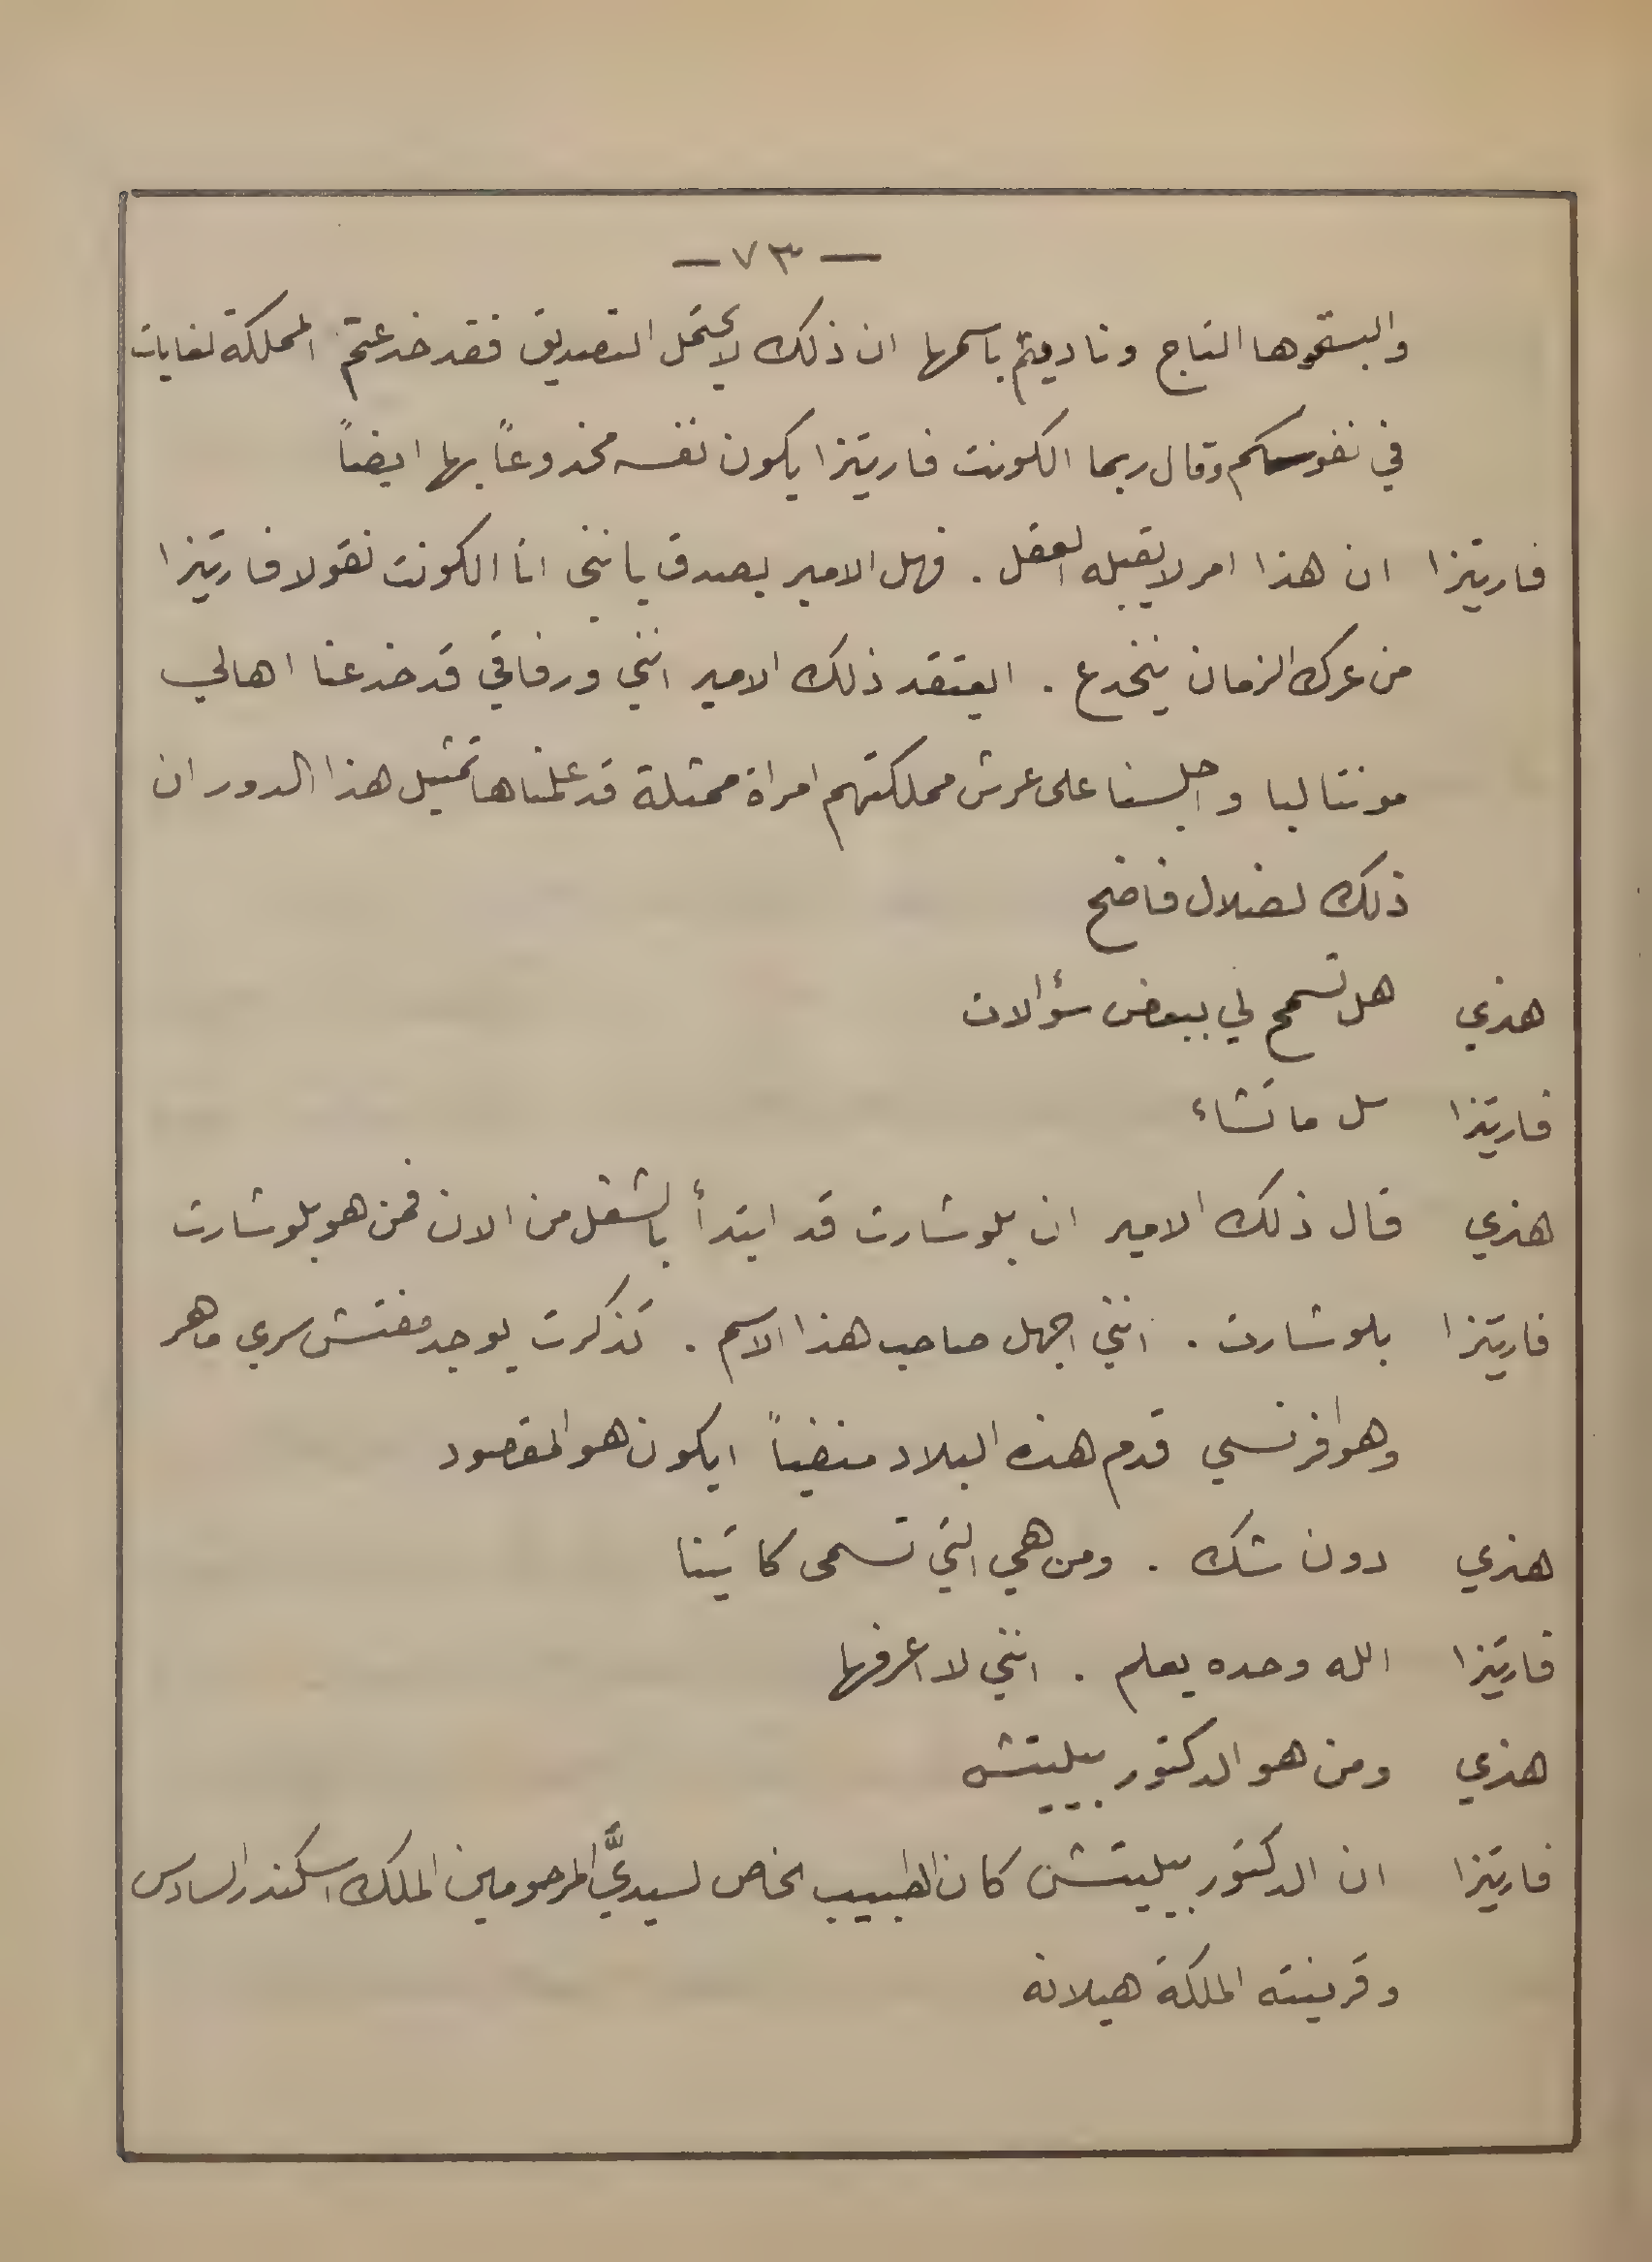 — ٧٣ —
والبستموها التاج وناديتم باسمها ان ذلك لا يحتمل التصديق فقد خدعتم المملكة لغايات
في نفوسكم وقال ربما الكونت فاريتزا يكون نفسه مخدوعاً بها ايضاً
فاريتزا ان هذا امر لا يقبله العقل . فهل الامير يصدق بانني انا الكونت نقولا فاريتزا
من عرك الزمان ينخدع . ايعتقد ذلك الامير انني ورفاقي قد خدعنا اهالي
مونتاليا واجلسنا على عرش مملكتهم امراة ممثلة قد علمناها تمثيل هذا الدور ان
ذلك لضلال فاضح
هنري هل تسمح لي ببعض سؤالات
فاريتزا سل ما تشاء
هنري قال ذلك الامير ان بلوشارت قد ابتدأ بالشغل من الان فمن هو بلوشارت
فاريتزا بلوشارت . انني اجهل صاحب هذا الاسم . تذكرت يوجد مفتش سري ماهر
وهو افرنسي قدم هذه البلاد متخفياً ايكون هو المقصود
هنري دون شك . ومن هي التي تسمى كاتينا
فاريتزا الله وحده يعلم . انني لا اعرفها
هنري ومن هو الدكتور بيليتش
فاريتزا ان الدكتور بيليتش كان الطبيب الخاص لسيديَّ المرحومين الملك اسكندر السادس
وقرينته الملكة هيلانه